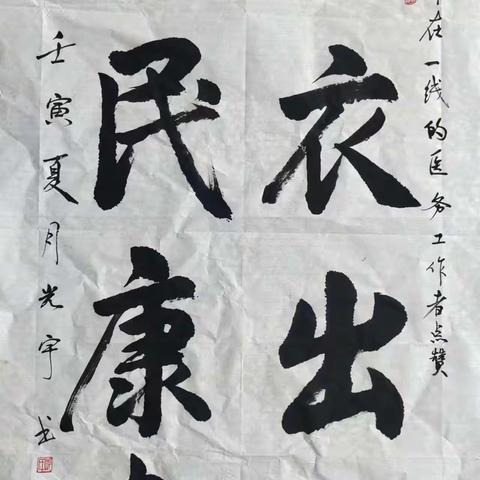 在一线的医务工作者点赞
衣出
民康
壬寅夏月光宇书